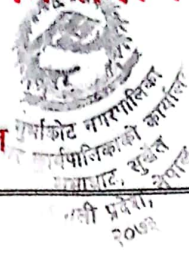 गुर्भाकोट नगरपालिका
कार्यपालिकाको कार्यालय
सुर्खेत
नेपाल
प्रदेश,
२०७३